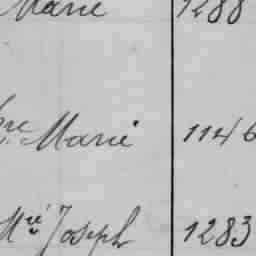 Marie 1288
bre Marie 1146
Mie Joseph 1283